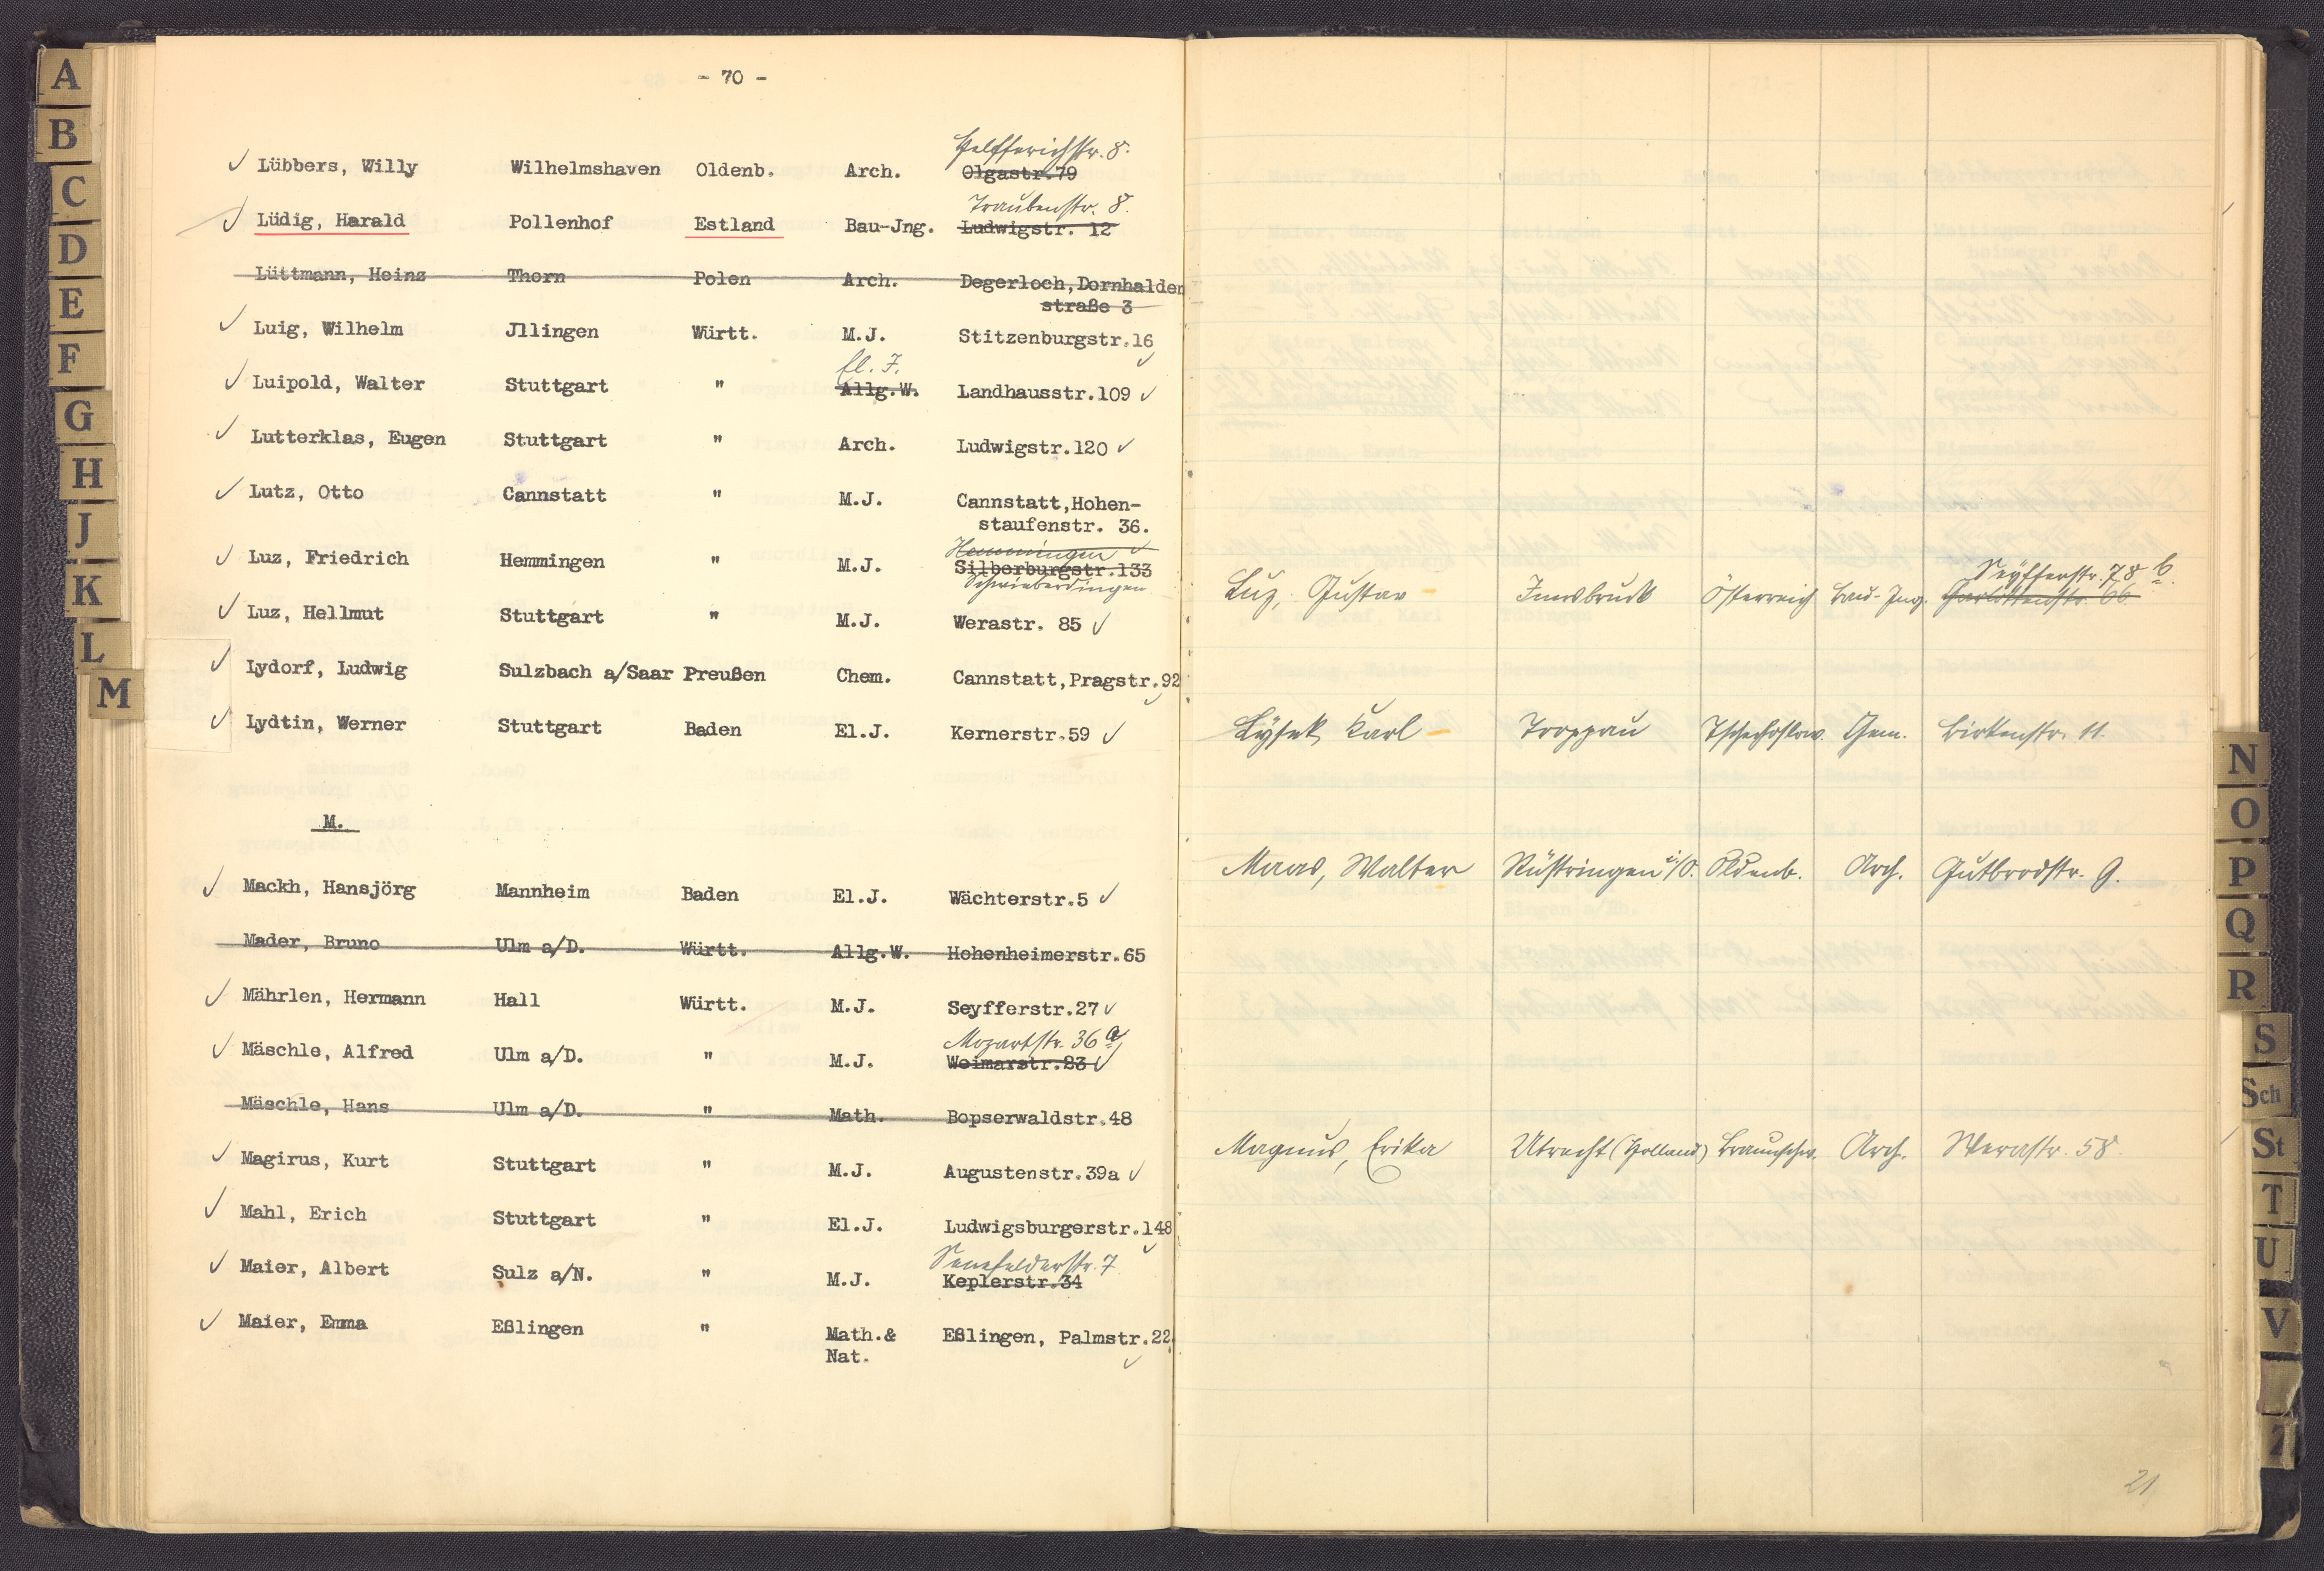 - 70 -
Helfferichstr. 8.
Lübbers, Willy Wilhelmshaven Oldenb. Arch. Olgastr.79
Traubenstr. 8.
Lüdig, Harald Pollenhof Estland Bau-Jng. Ludwigstr. 12
Lüttmann, Heinz Thorn Polen Arch. Degerloch,Dornhalden
straße 3
Luig, Wilhelm Jllingen Württ. M.J. Stitzenburgstr.16
El. J.
Luipold, Walter Stuttgart " Allg.W. Landhausstr.109
Lutterklas, Eugen Stuttgart " Arch. Ludwigstr.120
Lutz, Otto Cannstatt " M.J. Cannstatt,Hohen-
staufenstr. 36.
Hemmingen
Luz, Friedrich Hemmingen " M.J. Silberburgstr.133
Schwieberdingen
Luz, Hellmut Stuttgart " M.J. Werastr. 85
Lydorf, Ludwig Sulzbach a/Saar Preußen Chem. Cannstatt,Pragstr.92
Lydtin, Werner Stuttgart Baden El.J. Kernerstr.59
M.
Mackh, Hansjörg Mannheim Baden El.J. Wächterstr.5
Mader, Bruno Ulm a/D. Württ. Allg.W. Hohenheimerstr.65
Mährlen, Hermann Hall Württ. M.J. Seyfferstr.27
Mozartstr. 36 a
Mäschle, Alfred Ulm a/D. " M.J. Weimarstr.23
Mäschle, Hans Ulm a/D. " Math. Bopserwaldstr.48
Magirus, Kurt Stuttgart " M.J. Augustenstr.39a
Mahl, Erich Stuttgart " El.J. Ludwigsburgerstr.148
Senefelderstr. 7
Maier, Albert Sulz a/N. " M.J. Keplerstr.34
Maier, Emma Eßlingen " Math.& Eßlingen, Palmstr.22
Nat.
Seyfferstr. 78 b.
Luz, Gustav Innsbruck Österreich Bau-Jng. Charlottenstr. 66
Lysek, Karl Troppau Tschechoslow. Chem. Birkenstr. 11.
Maas, Walter Rüstringen i/O. Oldenb. Arch. Gutbrodstr. 9.
Magnus, Erika Utrecht (Holland) Braunschw. Arch. Werastr. 58.
21
A
B
C
D
E
F
G
H
J
K
L
M
N
O
P
Q
R
S
Sch
St
T
U
V
Z